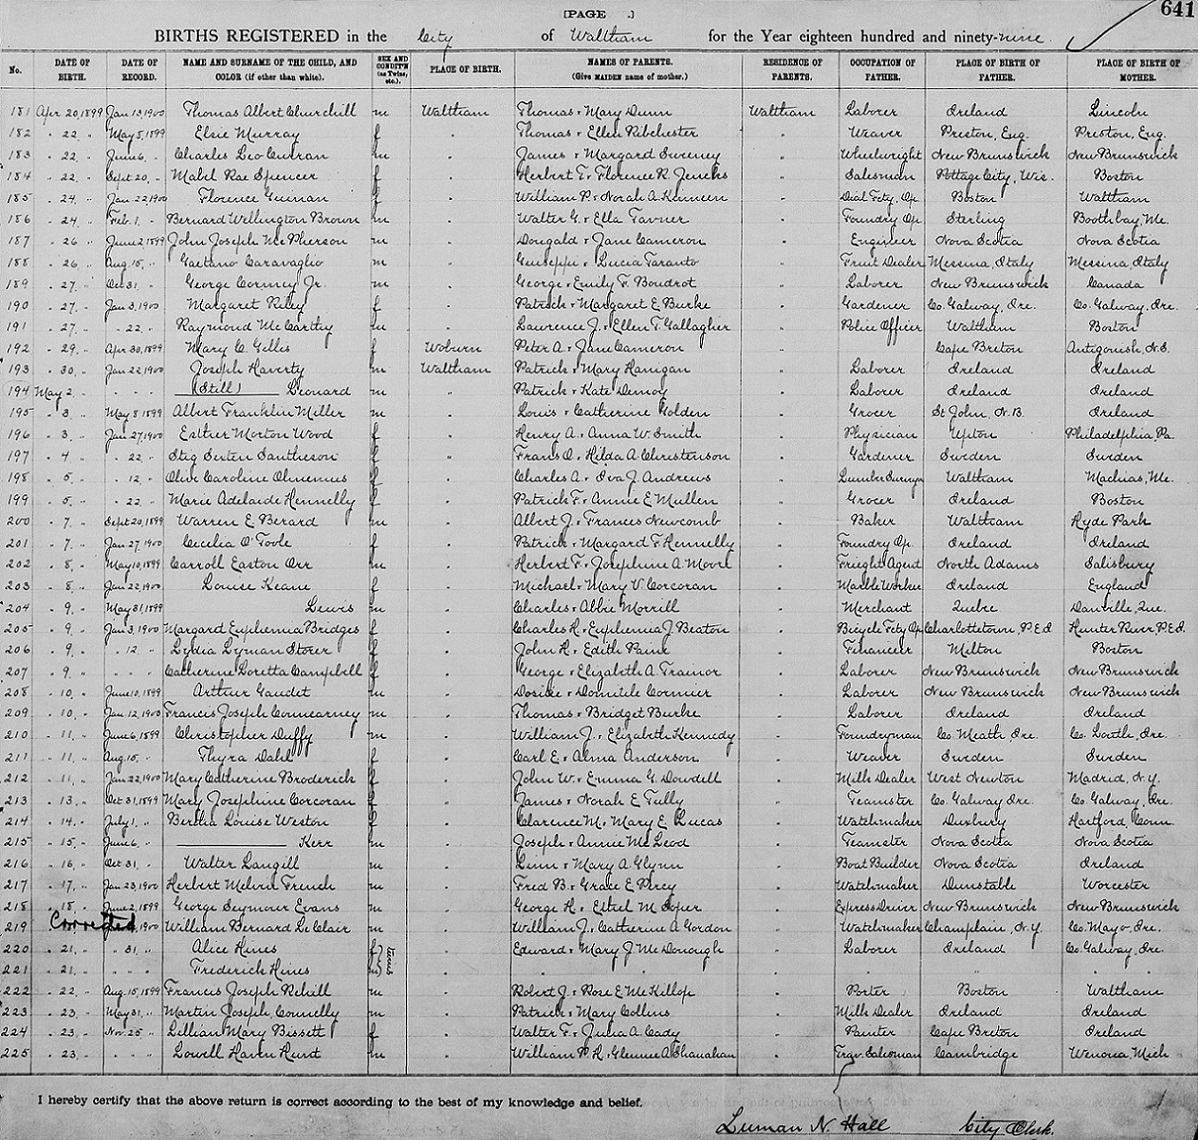 [PAGE .] 641
BIRTHS REGISTERED in the City of Waltham for the Year eighteen hundred and ninety-nine.
No. DATE OF BIRTH. DATE OF RECORD. NAME AND SURNAME OF THE CHILD, AND COLOR (if other than white). SEX AND CONDIT'N (as Twins, etc.). PLACE OF BIRTH. NAMES OF PARENTS. (Give MAIDEN name of mother.) RESIDENCE OF PARENTS. OCCUPATION OF FATHER. PLACE OF BIRTH OF FATHER. PLACE OF BIRTH OF MOTHER.
181 Apr 20, 1899 Jan 13, 1900 Thomas Albert Churchill m Waltham Thomas & Mary Dunn Waltham Laborer Ireland Lincoln
182 " 22, " May 5, 1899 Elsie Murray f " Thomas & Ellen Ribchester " Weaver Preston, Eng. Preston, Eng.
183 " 22, " June 6, " Charles Leo Curran m " James & Margard Sweeney " Wheelwright New Brunswick New Brunswick
184 " 22, " Sept 20, " Mabel Rae Spencer f " Herbert T. & Florence R. Jenks " Salesman Pottage City, Wis. Boston
185 " 24, " Jan 22, 1900 Florence f " William P. & Norah A. " Dial Fcty. Op. Boston Waltham
186 " 24, " Feb. 1, " Bernard Wellington Brown m " Walter G. & Ella Tavner " Foundry Op. Sterling Boothbay, Me.
187 " 26 " June 2, 1899 John Joseph McPherson m " Dougald & Jane Cameron " Engineer Nova Scotia Nova Scotia
188 " 26 " Aug. 15, " Gaetano Caravaglio m " Guiseppi & Lucia Taranto " Fruit Dealer Messina, Italy Messina, Italy
189 " 27, " Oct 31, " George Cormey Jr. m " George & Emily F. Boudrot " Laborer New Brunswick Canada
190 " 27, " Jan 3, 1900 Margaret Riley f " Patrick & Margaret E Burke " Gardener Co. Galway, Ire. Co. Galway, Ire.
191 " 27, " " 22, " Raymond McCarthy m " Lawrence J. & Ellen T. Gallagher " Police Officer Waltham Boston
192 " 29, " Apr 30, 1899 Mary C. Gillis f Woburn Peter A. & Jane Cameron " Cape Breton Antigonish, N.S.
193 " 30, " Jan 22, 1900 Joseph Haverty m Waltham Patrick & Mary Hanigan " Laborer Ireland Ireland
194 May 2 " " " " (Still) Leonard m " Patrick & Kate " Laborer Ireland Ireland
195 " 3, " May 8 1899 Albert Franklin Miller m " Louis & Catherine Golden " Grocer St John, N.B. Ireland
196 " 3, " Jan 27, 1900 Esther Morton Wood f " Henry A. & Anna W. Smith " Physician Upton Philadelphia Pa
197 " 4 " " 22, " Stig Sixten Santheson f " Frans O. & Hilda A. Christenson " Gardener Sweden Sweden
198 " 5, " " 12, " Olive Caroline f " Charles A. & Iva J. Andrews " Lumber Surveyor Waltham Machias, Me.
199 " 5, " " 22 " Marie Adelaide Hennelly f " Patrick F. & Annie E Mullen " Grocer Ireland Boston
200 " 7, " Sept 20, 1899 Warren E Berard m " Albert J. & Frances Newcomb " Baker Waltham Hyde Park
201 " 7, " Jan 27, 1900 Cecelia O'Toole f " Patrick & Margard F. Hennelly " Foundry Op. Ireland Ireland
202 " 8, " May 10, 1899 Carroll Easton Orr m " Herbert F. & Josephine A. Moore " Freight Agent North Adams Salisbury
203 " 8, " Jan 22, 1900 Louise Keane f " Michael & Mary V. Corcoran " Marble Worker Ireland England
204 " 9, " May 31, 1899 Lewis m " Charles & Abbie Morrill " Merchant Danville, Que.
205 " 9, " Jan 3, 1900 Margard Euphemia Bridges f " Charles H. & Euphemia J. Beaton " Bicycle Fcty Op Charlottetown, P.E.I. Hunter River, P.E.I.
206 " 9, " " 12 " Lydia Lyman Storer f " John H. & Edith Paine " Financeer Milton Boston
207 " 9, " " " " Catherine Loretta Campbell f " George & Elizabeth A. Trainor " Laborer New Brunswick New Brunswick
208 " 10, " June 10, 1899 Arthur Gaudet m " Doside & Domitile Cormier " Laborer New Brunswick New Brunswick
209 " 10, " Jan. 12, 1900 Francis Joseph Connearney m " Thomas & Bridget Burke " Laborer Ireland Ireland
210 " 11, " June 6, 1899 Christopher Duffy m " William J. & Elizabeth Kennedy " Foundryman Co. Meath, Ire. Co. Louth, Ire.
211 " 11, " Aug. 15, " Thyra Dahl f " Carl E. & Alma Anderson " Weaver Sweden Sweden
212 " 11, " Jan 22, 1900 Mary Catherine Broderick f " John W. & Emma G. Dowdell " Milk Dealer West Newton Madrid, N.Y.
213 " 13, " Oct 31, 1899 Mary Josephine Corcoran f " James & Norah E Tully " Teamster Co. Galway Ire. Co. Galway, Ire.
214 " 14, " July 1, " Bertha Louise Weston f " Clarence M. & Mary E. Lucas " Watchmaker Duxbury Hartford, Conn
215 " 15, " June 6, " Kerr m " Joseph & Annie McLeod " Teamster Nova Scotia Nova Scotia
216 " 16, " Oct 31, " Walter Langill m " Linn & Mary A. Glynn " Boat Builder Nova Scotia Ireland
217 " 17, " Jan 23, 1900 Herbert Melvin French m " Fred B. & Grace E Percy " Watchmaker Dunstable Worcester
218 " 18, " June 2, 1899 George Seymour Evans m " George H. & Ethel M Soper " Express Driver New Brunswick New Brunswick
219 Corrected 1900 William Bernard LeClair m " William J. & Catherine A Gordon " Watchmaker Champlain, N.Y. Co. Mayo, Ire.
220 " 21, " " 31, " Alice Hines f twins " Edward & Mary J. McDonough " Laborer Ireland Co. Galway, Ire.
221 " 21, " " " " Frederick Hines m " " " " " "
222 " 22, " Aug. 15, 1899 Francis Joseph Rehill m " Robert J. & Rose E McKillop " Porter Boston Waltham
223 " 23, " May 31, " Martin Joseph Connelly m " Patrick & Mary Collins " Milk Dealer Ireland Ireland
224 " 23, " Nov. 25 " Lillian Mary Bissett f " Walter F. & Julia A. Cady " Painter Cape Breton Ireland
225 " 23, " " " " Lowell Haven Hunt m " William P. H. & Glennie A Shanahan " Trav. Salesman Cambridge Wenona, Mich
I hereby certify that the above return is correct according to the best of my knowledge and belief.
Luman N. Hall City Clerk.